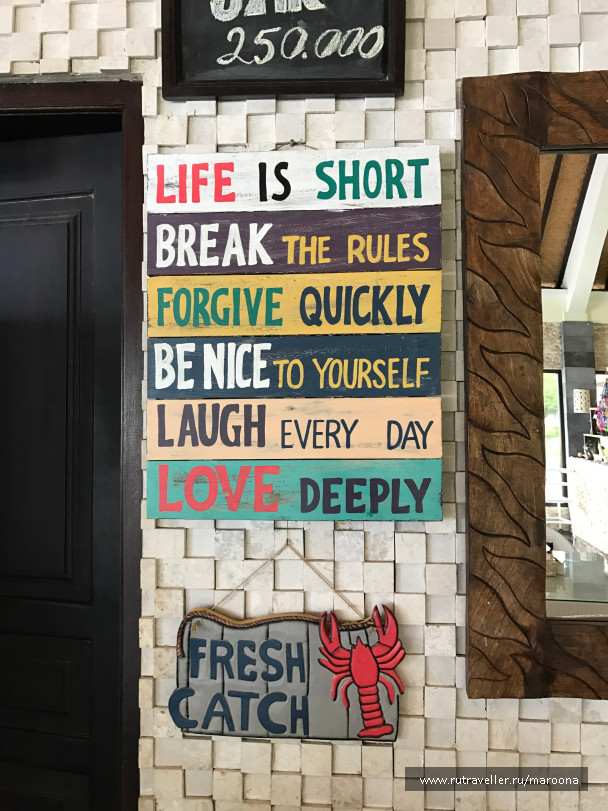 250.000
LIFE IS SHORT
BREAK THE RULES
FORGIVE QUICKLY
BE NICE TO YOURSELF
LAUGH EVERY DAY
LOVE DEEPLY
FRESH
CATCH
www.rutraveller.ru/maroona